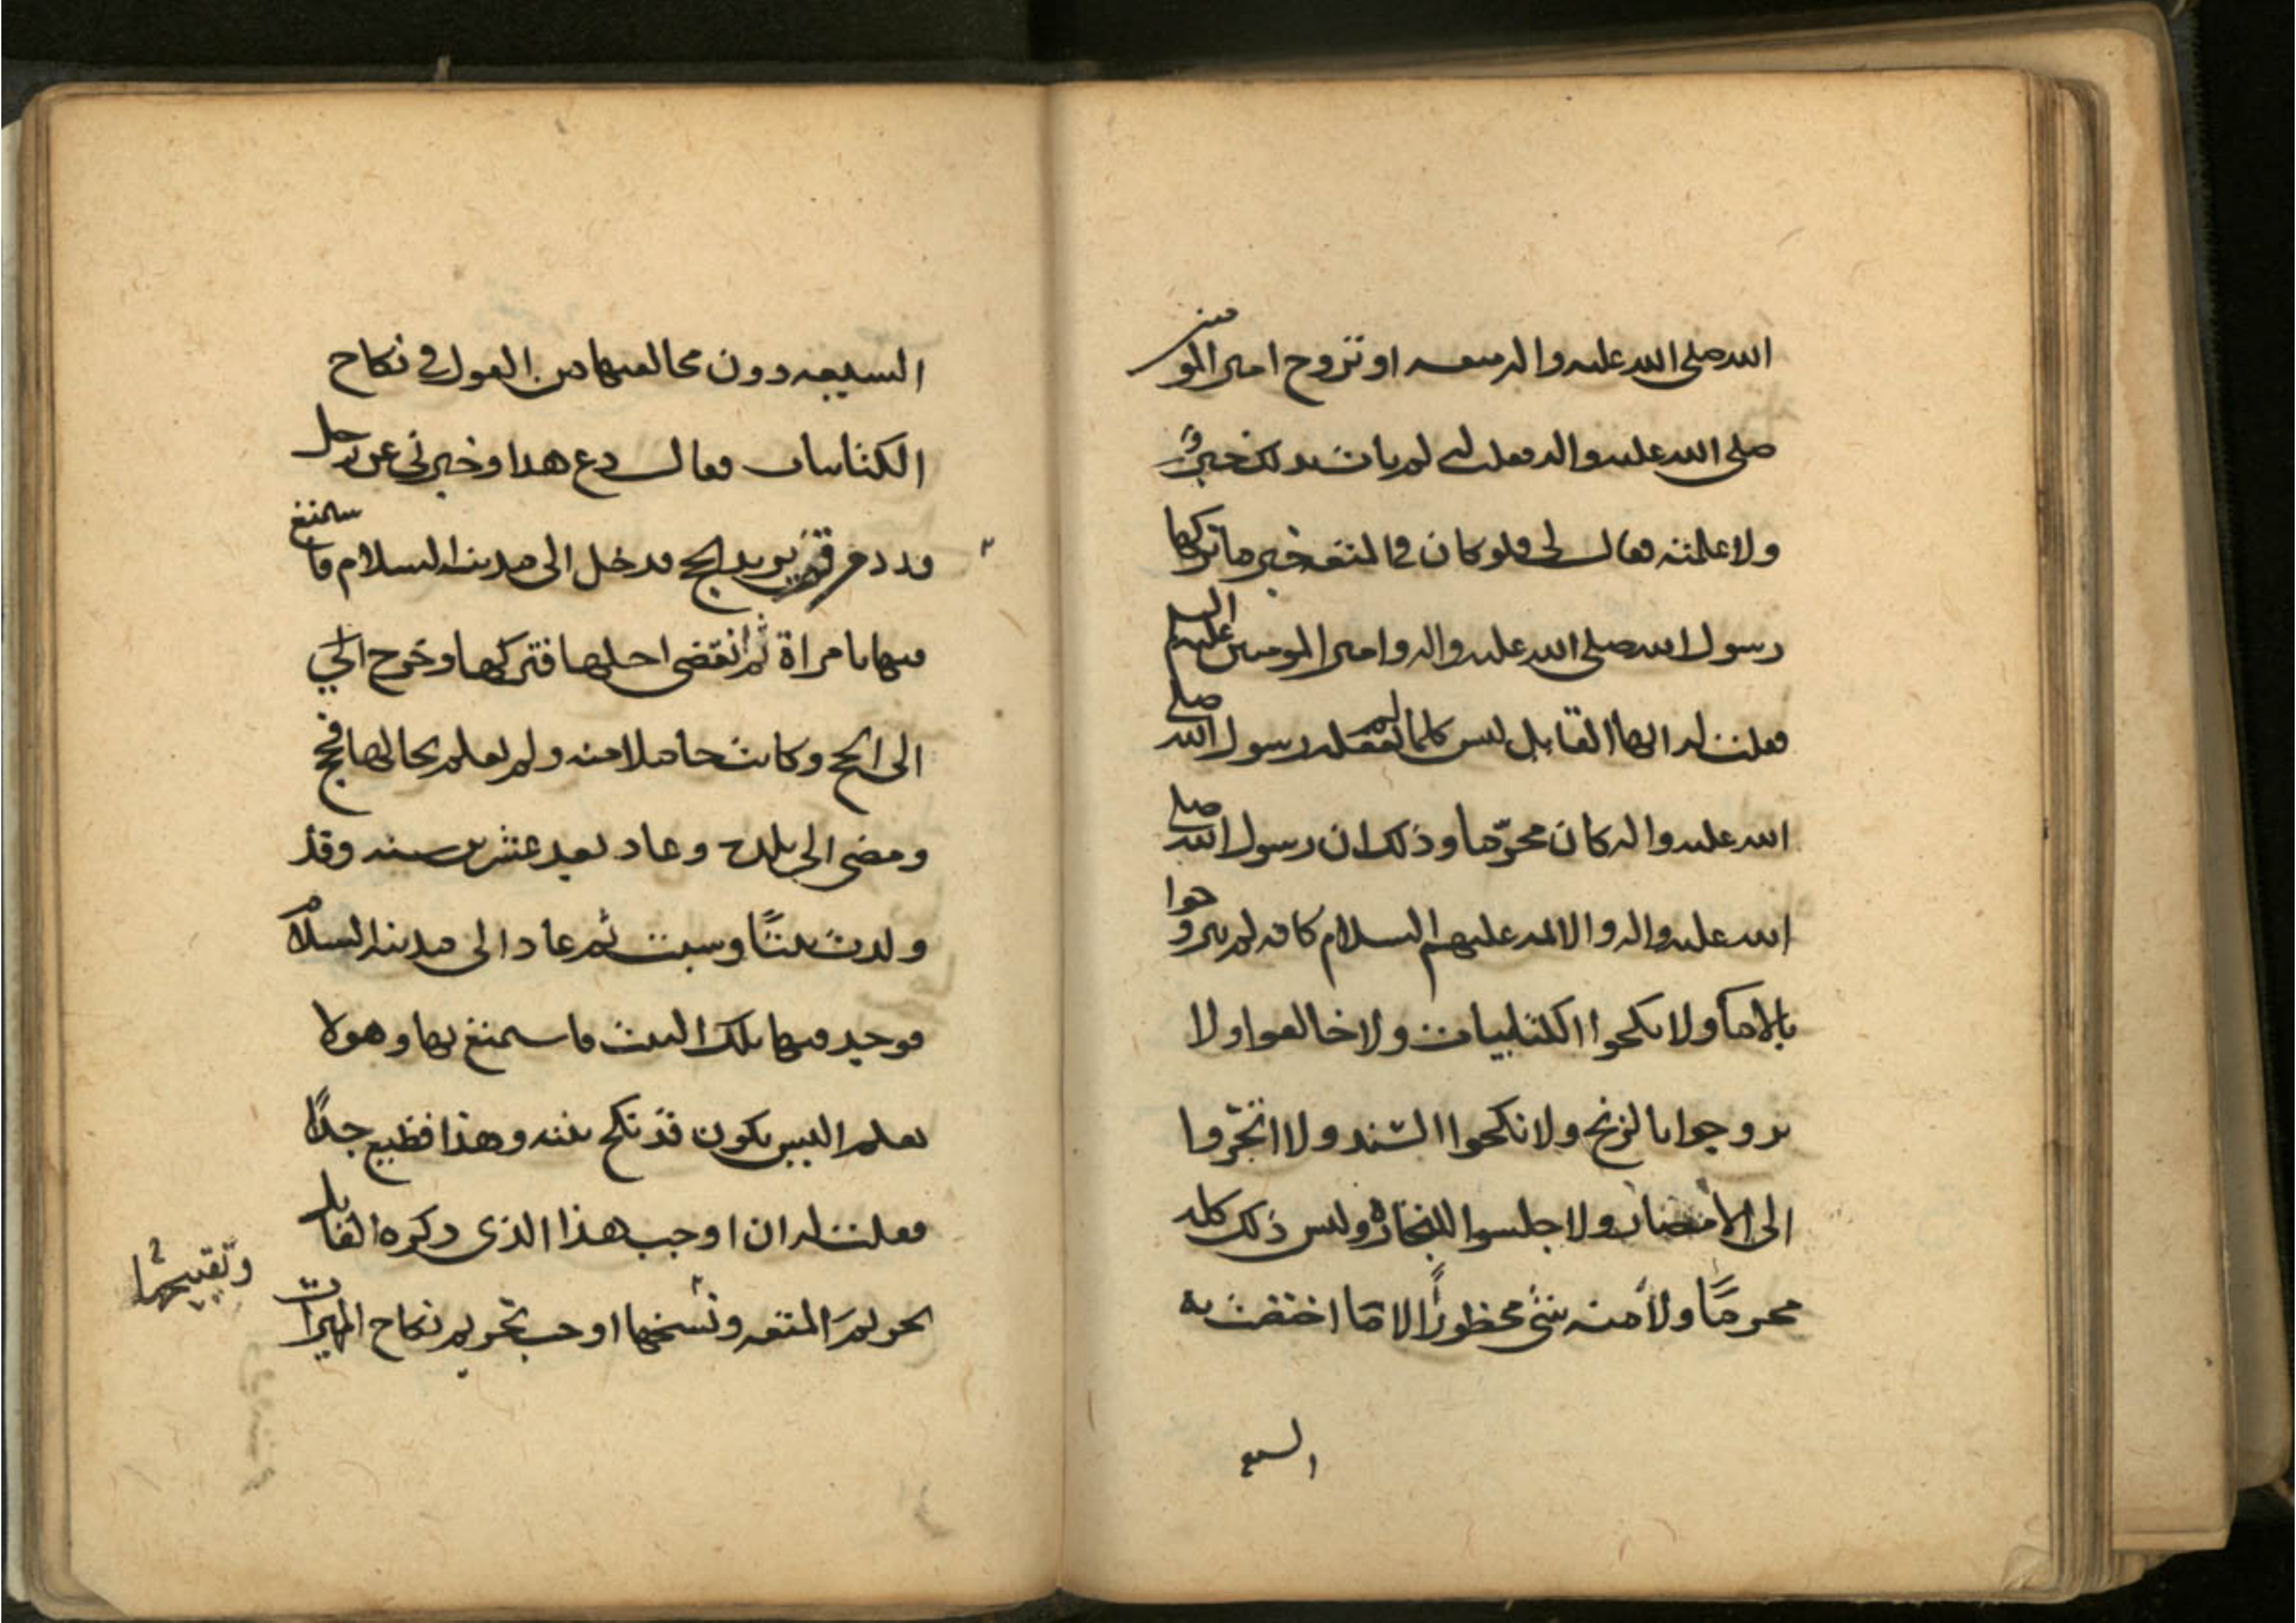 الله صلى الله عليه واله متعه او تزوج امير المومنين
صلى الله عليه واله فقلت له لم يات بذلك خبرٌ
ولا علمته فقال لى فلو كان فى المتعه خير ما تركها
رسول الله صلى الله عليه واله وامير المومنين عليهم السلم
فقلت له ايها القايل ليس كلما لم يفعله رسول الله صلى
الله عليه واله كان محرّما وذلك ان رسول الله صلى
الله عليه واله والائمه عليهم السلام كافه لم يتزوجوا
بالامآ ولا نكحوا الكتابيات ولا خالعوا ولا
تزوجوا بالزنج ولا نكحوا السّند ولا اتّجروا
الى الامصار ولا جلسوا للتجارة وليس ذلك كله
محرمًا ولا منه شئ محظورًا الا ما اختصت به
السيع
الشيعه دون مخالفيها من القول فى نكاح
الكتابيات فقال دع هذا وخبرنى عن رجل
ورد من قم يريد الحج فدخل الى مدينه السلام فاستمتع
فيها بامراة ثم انقضى اجلها فتركها وخرج الى
الى الحج وكانت حاملا منه ولم يعلم بحالها فحج
ومضى الى بلده وعاد بعد عشرين سنه وقد
ولدت بنتًا وشبت ثم عاد الى مدينه السلام
فوجد فيها تلك البنت فاستمتع بها وهو لا
يعلم اليس يكون قد نكح بنته وهذا فظيع جدًا
فقلت له ان اوجب هذا الذى ذكره القايل
تحريم المتعه وتقبيحها اوجب تحريم نكاح الميراث
وتقبيحها